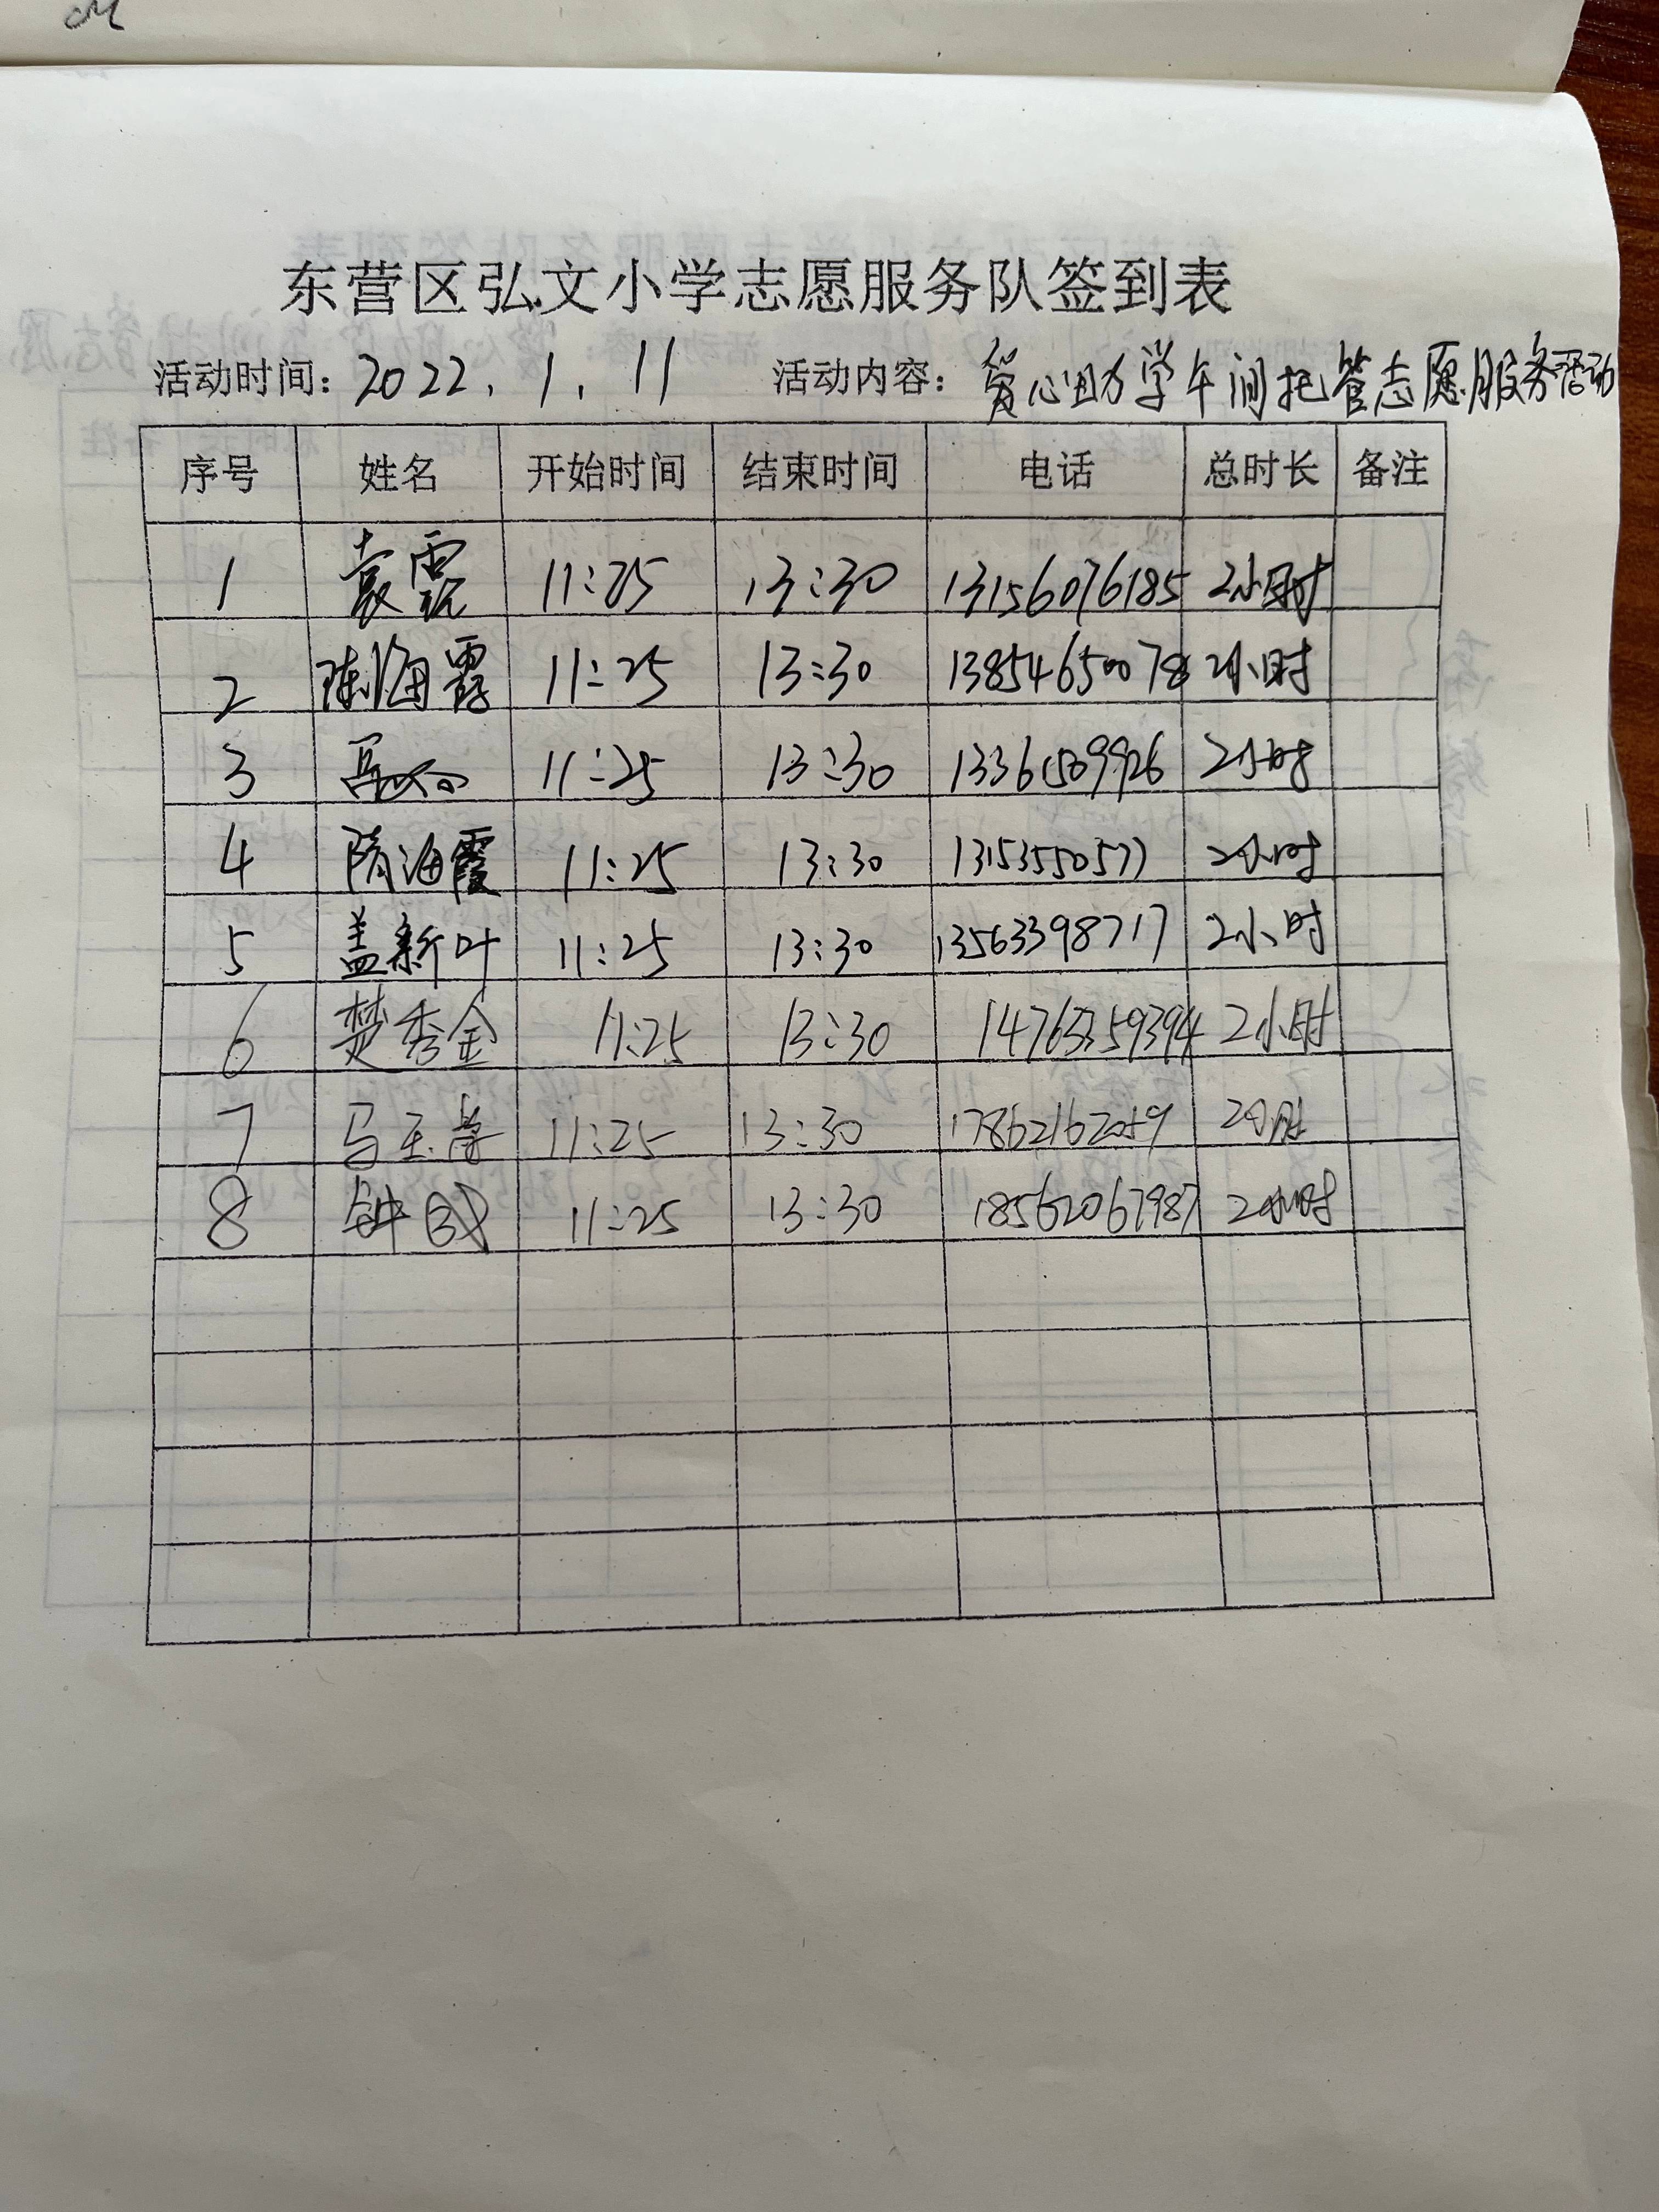 东营区弘文小学志愿服务队签到表
活动时间：2022.1.11 活动内容：爱心助学午间托管志愿服务活动
序号 姓名 开始时间 结束时间 电话 总时长 备注
1 袁霓 11:25 13:30 13156076185 2小时
2 陈海霞 11:25 13:30 13854650078 2小时
3 11:25 13:30 13361509926 2小时
4 隋海霞 11:25 13:30 13153550577 2小时
5 盖新叶 11:25 13:30 13563398717 2小时
6 楚秀金 11:25 13:30 14763359394 2小时
7 11:25 13:30 17862162059 2小时
8 11:25 13:30 18562067987 2小时